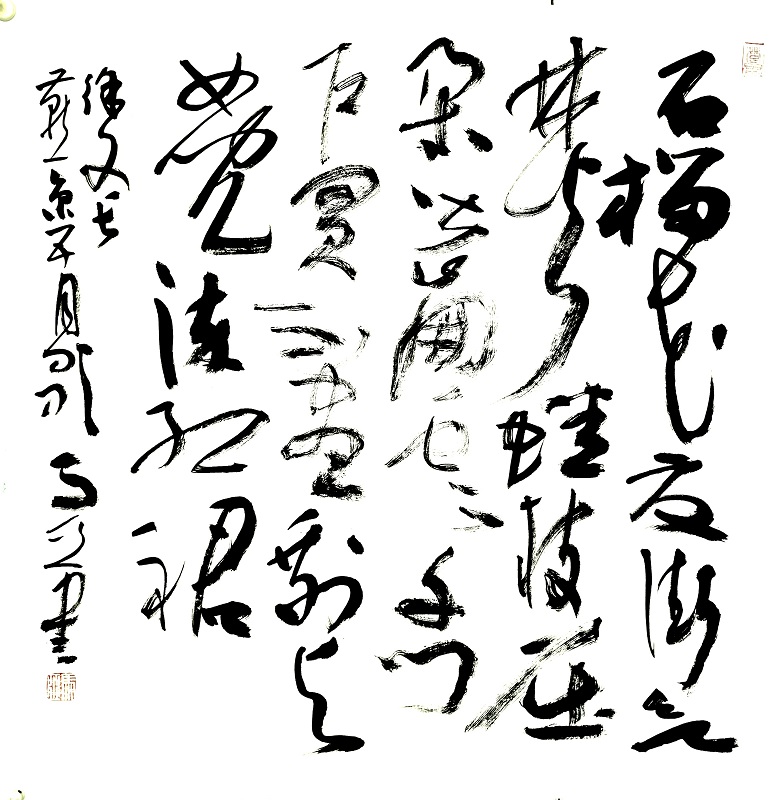 石榴花发街欲
焚蟠枝屈
朵皆崩云千门
万户买不尽剩与
女儿染红裙
徐文长
燕京五月歌
书